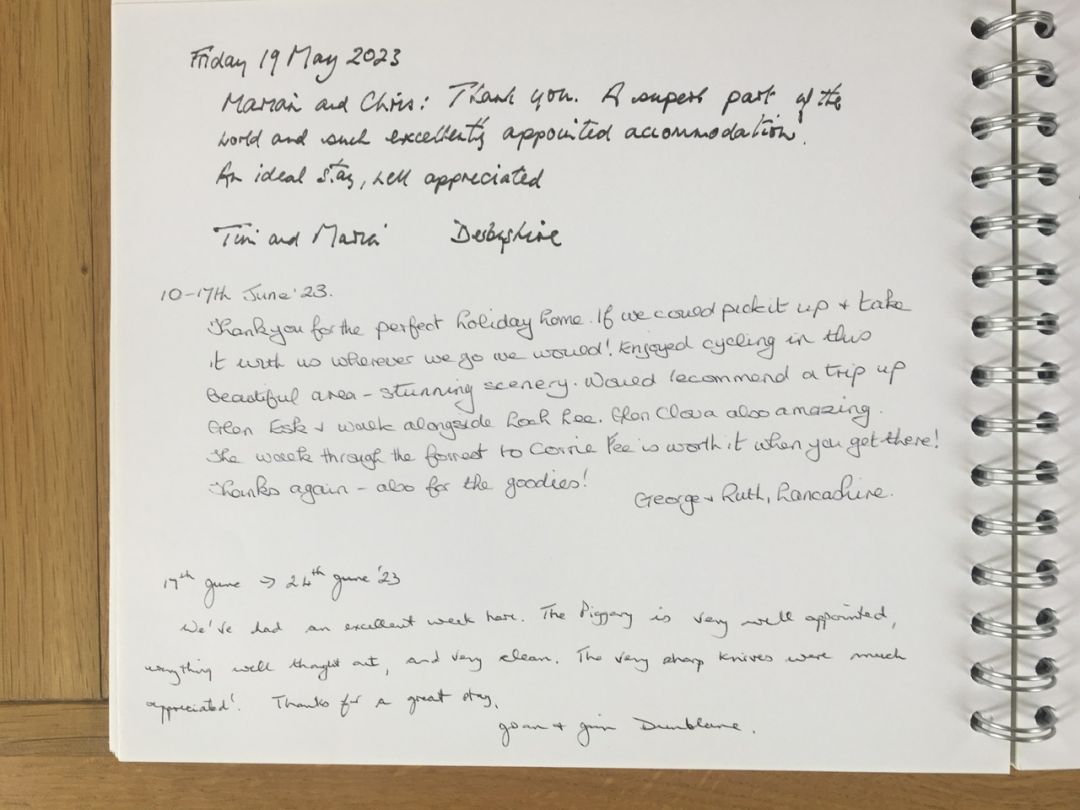 Friday 19 May 2023
Marian and Chris: Thank you. A superb part of the
world and such excellently appointed accommodation.
An ideal stay, well appreciated
Tim and Maria Derbyshire
10-17th June '23.
Thankyou for the perfect holiday home. If we could pick it up + take
it with us wherever we go we would! Enjoyed cycling in this
beautiful area - stunning scenery. Would recommend a trip up
Glen Esk + walk alongside Loch Lee. Glen Clova also amazing.
The walk through the forrest to Corrie Fee is worth it when you get there!
Thanks again - also for the goodies!
George + Ruth, Lancashire.
17th June → 24th June '23
We've had an excellent week here. The Piggery is very well appointed,
everything well thought out, and very clean. The very sharp knives were much
appreciated! Thanks for a great stay.
Joan + Jim Dunblane.